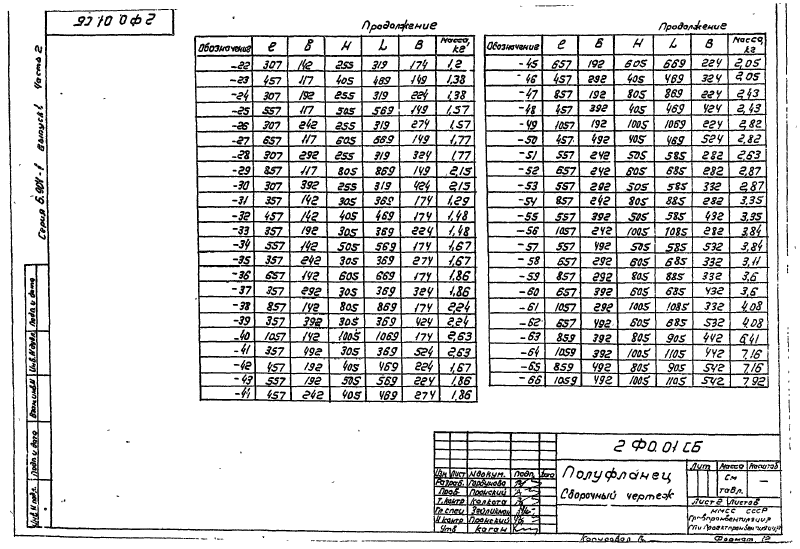 2Ф0.01СБ
Серия 5.904-1 Выпуск 1 Часть 2
Продолжение
Обозначение e в H L B Масса, кг
-22 307 142 255 319 174 1,2
-23 457 117 405 469 149 1,38
-24 307 192 255 319 224 1,38
-25 557 117 505 569 149 1,57
-26 307 242 255 319 274 1,57
-27 657 117 605 669 149 1,77
-28 307 292 255 319 324 1,77
-29 857 117 805 869 149 2,15
-30 307 392 255 319 424 2,15
-31 357 142 305 369 174 1,29
-32 457 142 405 469 174 1,48
-33 357 192 305 369 224 1,48
-34 557 142 505 569 174 1,67
-35 357 242 305 369 274 1,67
-36 657 142 605 669 174 1,86
-37 357 292 305 369 324 1,86
-38 857 142 805 869 174 2,24
-39 357 392 305 369 424 2,24
-40 1057 142 1005 1069 174 2,63
-41 357 492 305 369 524 2,63
-42 457 192 405 469 224 1,67
-43 557 192 505 569 224 1,86
-41 457 242 405 469 274 1,86
Продолжение
Обозначение e в H L B Масса, кг
-45 657 192 605 669 224 2,05
-46 457 292 405 469 324 2,05
-47 857 192 805 869 224 2,43
-48 457 392 405 469 424 2,43
-49 1057 192 1005 1069 224 2,82
-50 457 492 405 469 524 2,82
-51 557 242 505 585 282 2,63
-52 657 242 605 685 282 2,87
-53 557 292 505 585 332 2,87
-54 857 242 805 885 282 3,35
-55 557 392 505 585 432 3,35
-56 1057 242 1005 1085 282 3,84
-57 557 492 505 585 532 3,84
-58 657 292 605 685 332 3,11
-59 857 292 805 885 332 3,6
-60 657 392 605 685 432 3,6
-61 1057 292 1005 1085 332 4,08
-62 657 492 605 685 532 4,08
-63 859 392 805 905 442 6,41
-64 1059 392 1005 1105 442 7,16
-65 859 492 805 905 542 7,16
-66 1059 492 1005 1105 542 7,92
2Ф0.01СБ
Полуфланец
Сборочный чертеж
Лит Масса Масштаб
См табл. —
Лист 2 Листов
ММСС СССР
Изм Лист N докум. Подп. Дата
Разраб. Горбунова
Пров Пронский
Т.контр
Гл спец
Н.контр Пронский
Утв Каган
Инв.N подл. Подп и дата Взам.инв.N Инв.N дубл. Подп и дата
Копировал
Формат 12